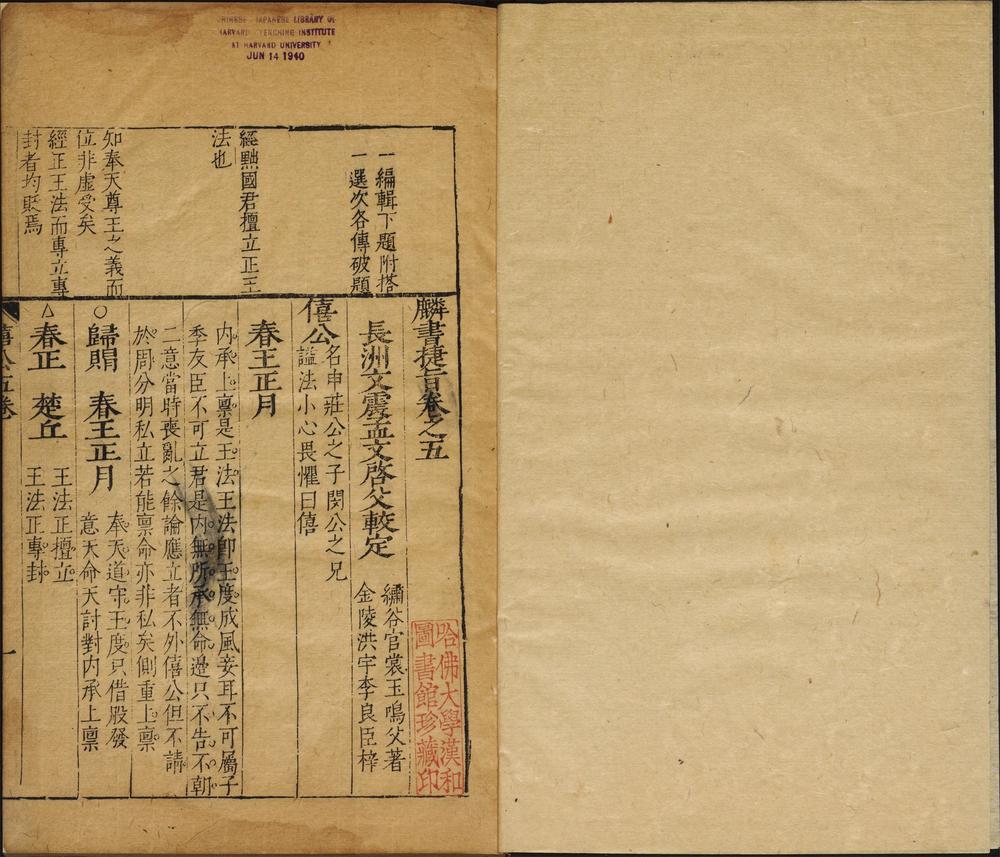 CHINESE JAPANESE LIBRARY OF
HARVARD YENCHING INSTITUTE
AT HARVARD UNIVERSITY
JUN 14 1940
一編輯下題附搭
一選次各傳破題
經黜國君擅立正王
法也
知奉天尊王之義而
位非虛受矣
經正王法而專立專
封者均貶焉
麟書捷旨卷之五
長洲文震孟文啓父較定
繡谷官裳玉鳴父著
金陵洪宇李良臣梓
僖公
名申莊公之子閔公之兄
謚法小心畏懼曰僖
春王正月
内承上禀是王法王法即王度成風妾耳不可屬子
季友臣不可立君是内無所承無命邊只不告不朝
二意當時喪亂之餘論應立者不外僖公但不請
於周分明私立若能禀命亦非私矣側重上禀
○歸賵 春王正月
奉天道守王度只借股發
意天命天討對内承上禀
△春正 楚丘
王法正擅立
王法正專封
僖公五卷
一
哈佛大學漢和
圖書館珍藏印